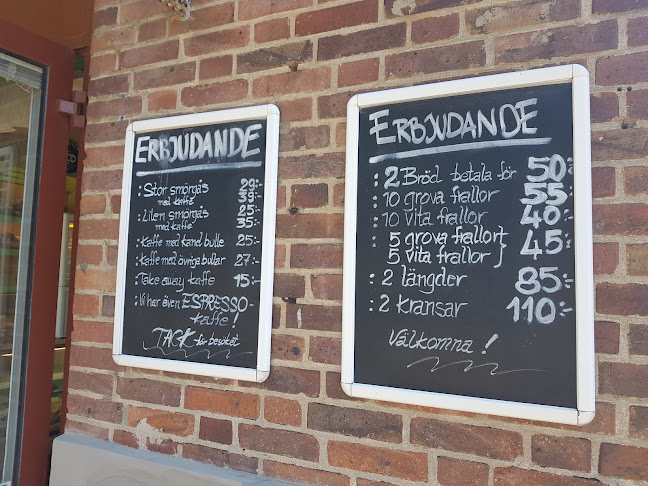 ERBJUDANDE
: Stor smörgås 29:-
med kaffe 39:-
: Liten smörgås 25:-
med kaffe 35:-
: Kaffe med kanel bulle 25:-
: Kaffe med övriga bullar 27:-
: Take away kaffe 15:-
: Vi har även ESPRESSO-
kaffe!
TACK för besöket
ERBJUDANDE
: 2 Bröd betala för 50:-
: 10 grova frallor 55:-
: 10 vita frallor 40:-
: 5 grova frallor +
5 vita frallor } 45:-
: 2 längder 85:-
: 2 kransar 110:-
Välkomna!